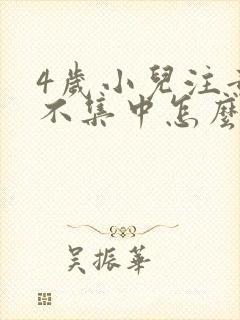 4歲小兒注
不集中怎麼
吳振華